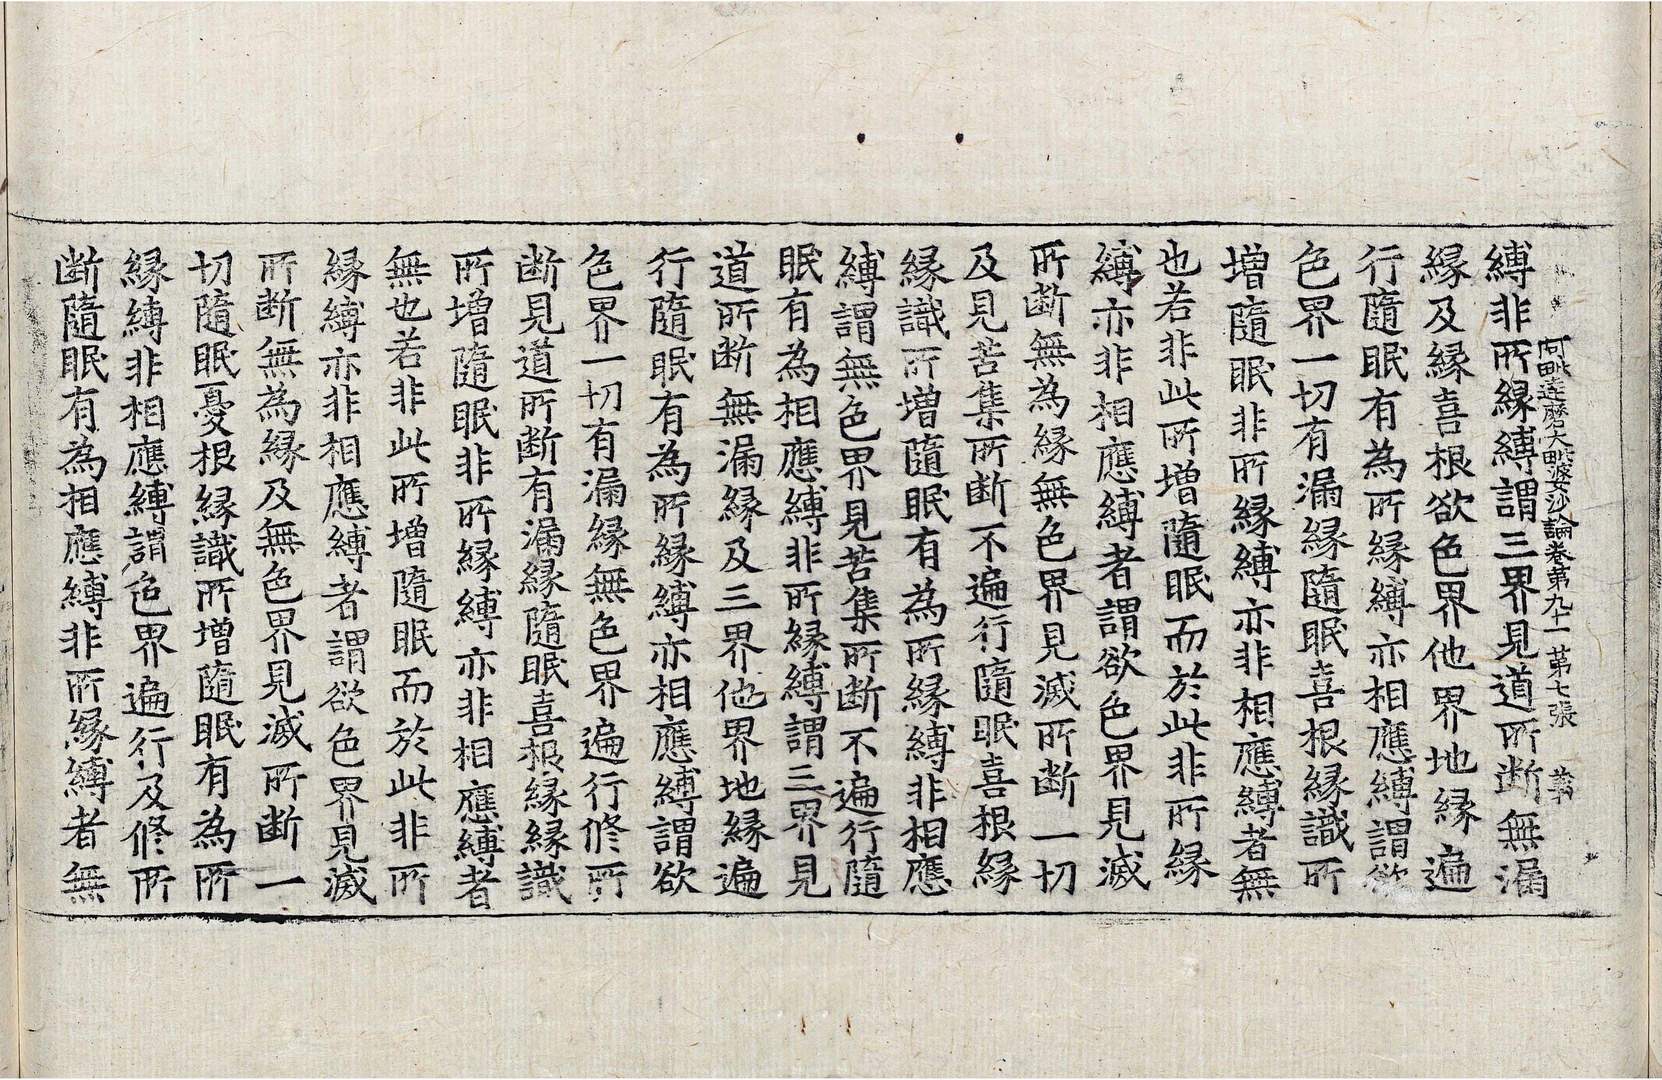 阿毗達磨大毗婆沙論卷第九十一 第七張
縛非所緣縛謂三界見道所斷無漏
緣及緣喜根欲色界他界地緣遍
行隨眠有為所緣縛亦相應縛謂欲
色界一切有漏緣隨眠喜根緣識所
增隨眠非所緣縛亦非相應縛者無
也若非此所增隨眠而於此非所緣
縛亦非相應縛者謂欲色界見滅
所斷無為緣無色界見滅所斷一切
及見苦集所斷不遍行隨眠喜根緣
緣識所增隨眠有為所緣縛非相應
縛謂無色界見苦集所斷不遍行隨
眠有為相應縛非所緣縛謂三界見
道所斷無漏緣及三界他界地緣遍
行隨眠有為所緣縛亦相應縛謂欲
色界一切有漏緣無色界遍行修所
斷見道所斷有漏緣隨眠喜根緣緣識
所增隨眠非所緣縛亦非相應縛者
無也若非此所增隨眠而於此非所
緣縛亦非相應縛者謂欲色界見滅
所斷無為緣及無色界見滅所斷一
切隨眠憂根緣識所增隨眠有為所
緣縛非相應縛謂色界遍行及修所
斷隨眠有為相應縛非所緣縛者無